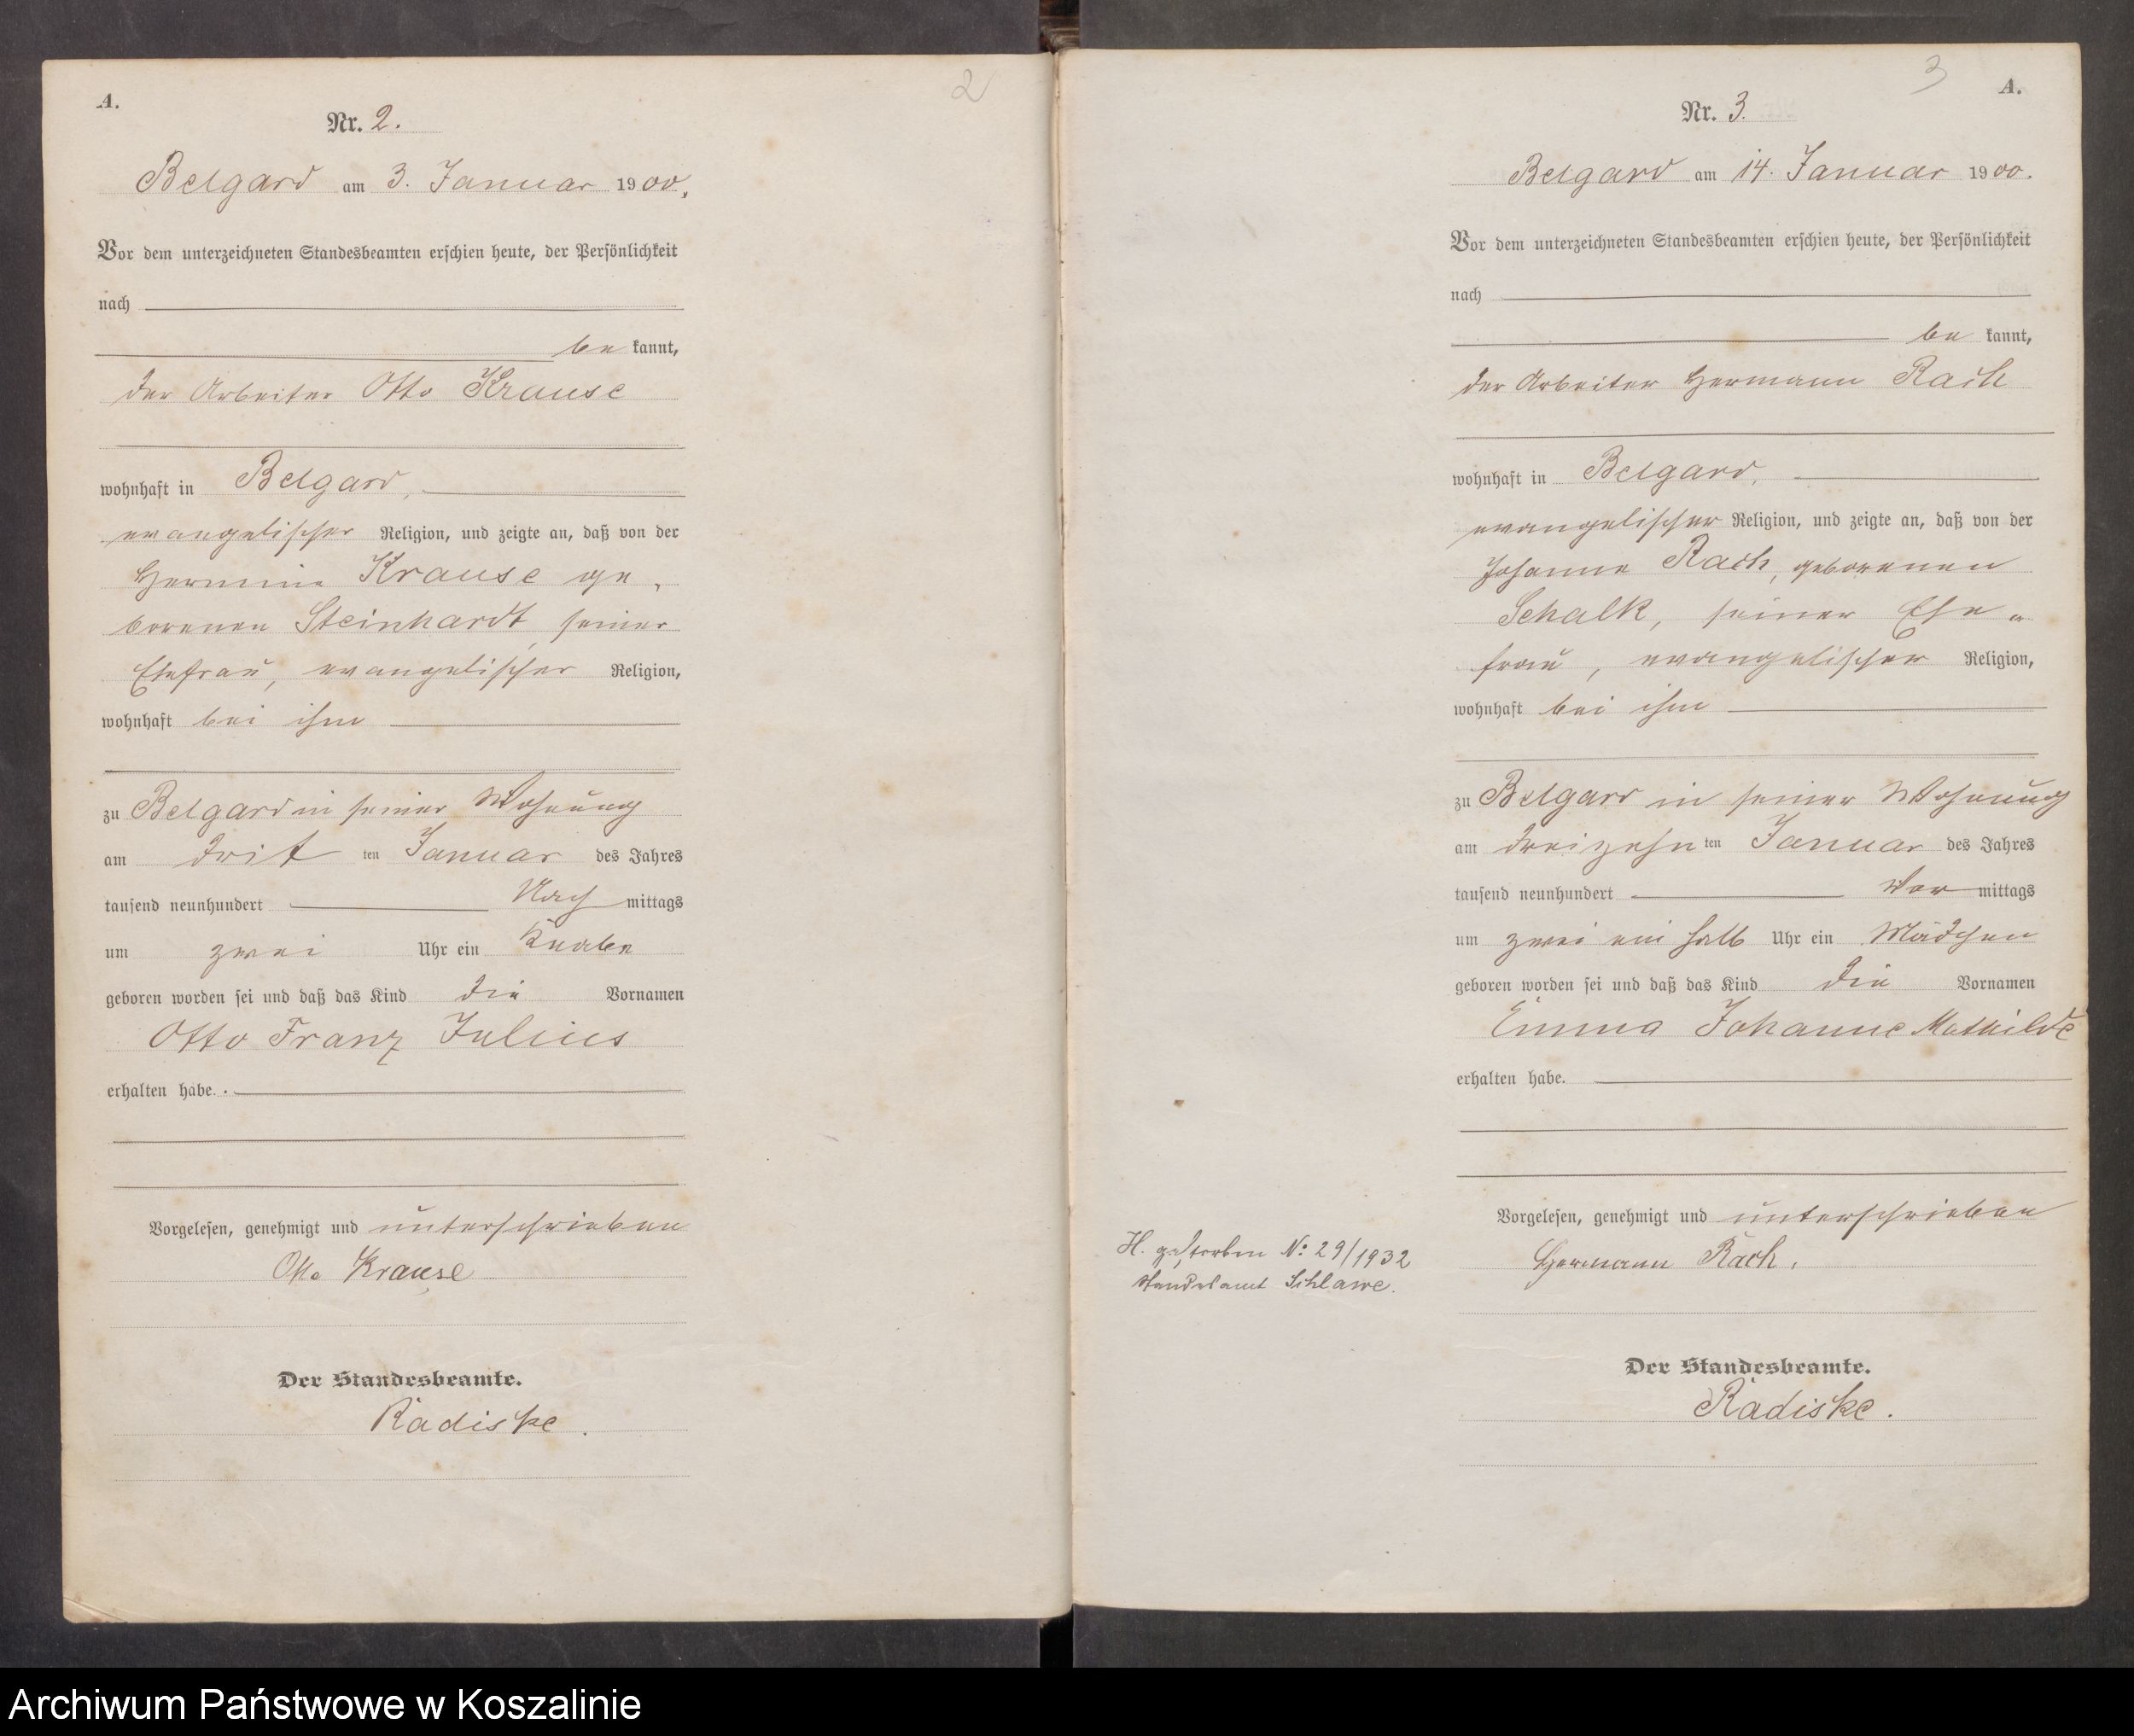 A.
2
Nr. 2.
Belgard am 3. Januar 1900.
Vor dem unterzeichneten Standesbeamten erschien heute, der Persönlichkeit
nach
be kannt,
der Arbeiter Otto Krause
wohnhaft in Belgard,
evangelischer Religion, und zeigte an, daß von der
Hermine Krause ge-
borenen Steinhardt, seiner
Ehefrau, evangelischer Religion,
wohnhaft bei ihm
zu Belgard in seiner Wohnung
am dritten Januar des Jahres
tausend neunhundert Nachmittags
um zwei Uhr ein Knabe
geboren worden sei und daß das Kind die Vornamen
Otto Franz Julius
erhalten habe.
Vorgelesen, genehmigt und unterschrieben
Otto Krause
Der Standesbeamte.
Radiske.
3
A.
Nr. 3.
Belgard am 14. Januar 1900.
Vor dem unterzeichneten Standesbeamten erschien heute, der Persönlichkeit
nach
be kannt,
der Arbeiter Hermann Rach
wohnhaft in Belgard,
evangelischer Religion, und zeigte an, daß von der
Johanne Rach, geborenen
Schalk, seiner Ehe-
frau, evangelischer Religion,
wohnhaft bei ihm
zu Belgard in seiner Wohnung
am dreizehnten Januar des Jahres
tausend neunhundert Vormittags
um zwei ein halb Uhr ein Mädchen
geboren worden sei und daß das Kind die Vornamen
Emma Johanne Mathilde
erhalten habe.
Vorgelesen, genehmigt und unterschrieben
Hermann Rach.
H. gestorben No 29/1932
Standesamt Schlawe.
Der Standesbeamte.
Radiske.
Archiwum Państwowe w Koszalinie